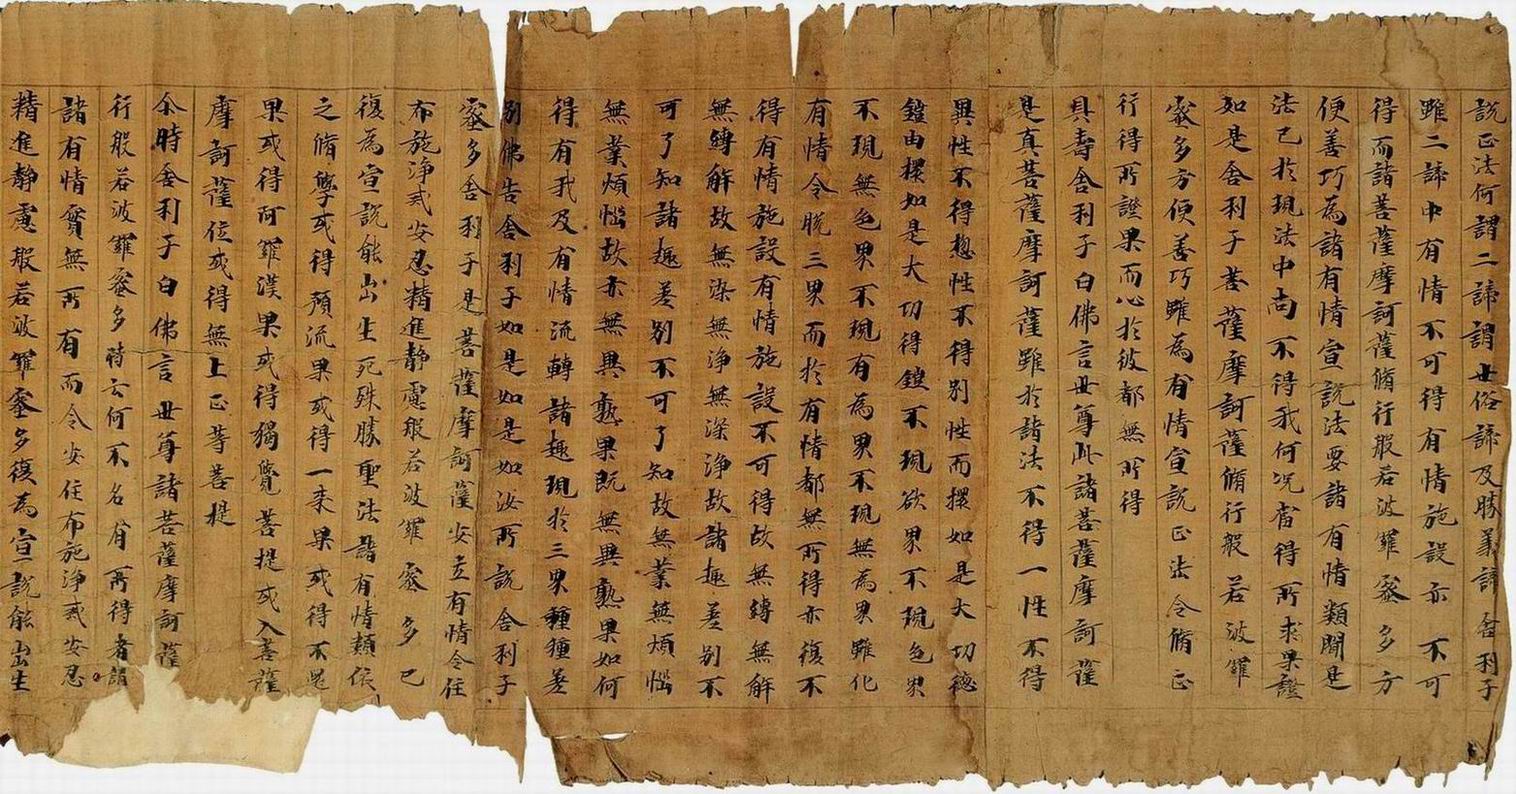 說正法何謂二諦謂世俗諦及勝義諦舍利子
雖二諦中有情不可得有情施設亦不可
得而諸菩薩摩訶薩脩行般若波羅蜜多方
便善巧為諸有情宣說法要諸有情類聞是
法已於現法中尚不得我何況當得所求果證
如是舍利子菩薩摩訶薩脩行般若波羅
蜜多方便善巧雖為有情宣說正法令脩正
行得所證果而心於彼都無所得
具壽舍利子白佛言世尊此諸菩薩摩訶薩
是真菩薩摩訶薩雖於諸法不得一性不得
異性不得惣性不得別性而擐如是大功德
鎧由擐如是大功得鎧不現欲界不現色界
不現無色界不現有為界不現無為界雖化
有情令脫三界而於有情都無所得亦復不
得有情施設有情施設不可得故無縛無解
無縛解故無染無淨無染淨故諸趣差別不
可了知諸趣差別不可了知故無業無煩惱
無業煩惱故亦無異熟果既無異熟果如何
得有我及有情流轉諸趣現於三界種種差
別佛告舍利子如是如是如汝所說舍利子
蜜多舍利子是菩薩摩訶薩安立有情令住
布施淨戒安忍精進靜慮般若波羅蜜多已
復為宣說能出生死殊勝聖法諸有情類依
之脩學或得預流果或得一来果或得不還
果或得阿羅漢果或得獨覺菩提或入菩薩
摩訶薩位或得無上正等菩提
尒時舍利子白佛言世尊諸菩薩摩訶薩
行般若波羅蜜多時云何不名有所得者諸
諸有情實無所有而令安住布施淨戒安忍
精進靜慮般若波羅蜜多復為宣說能出生